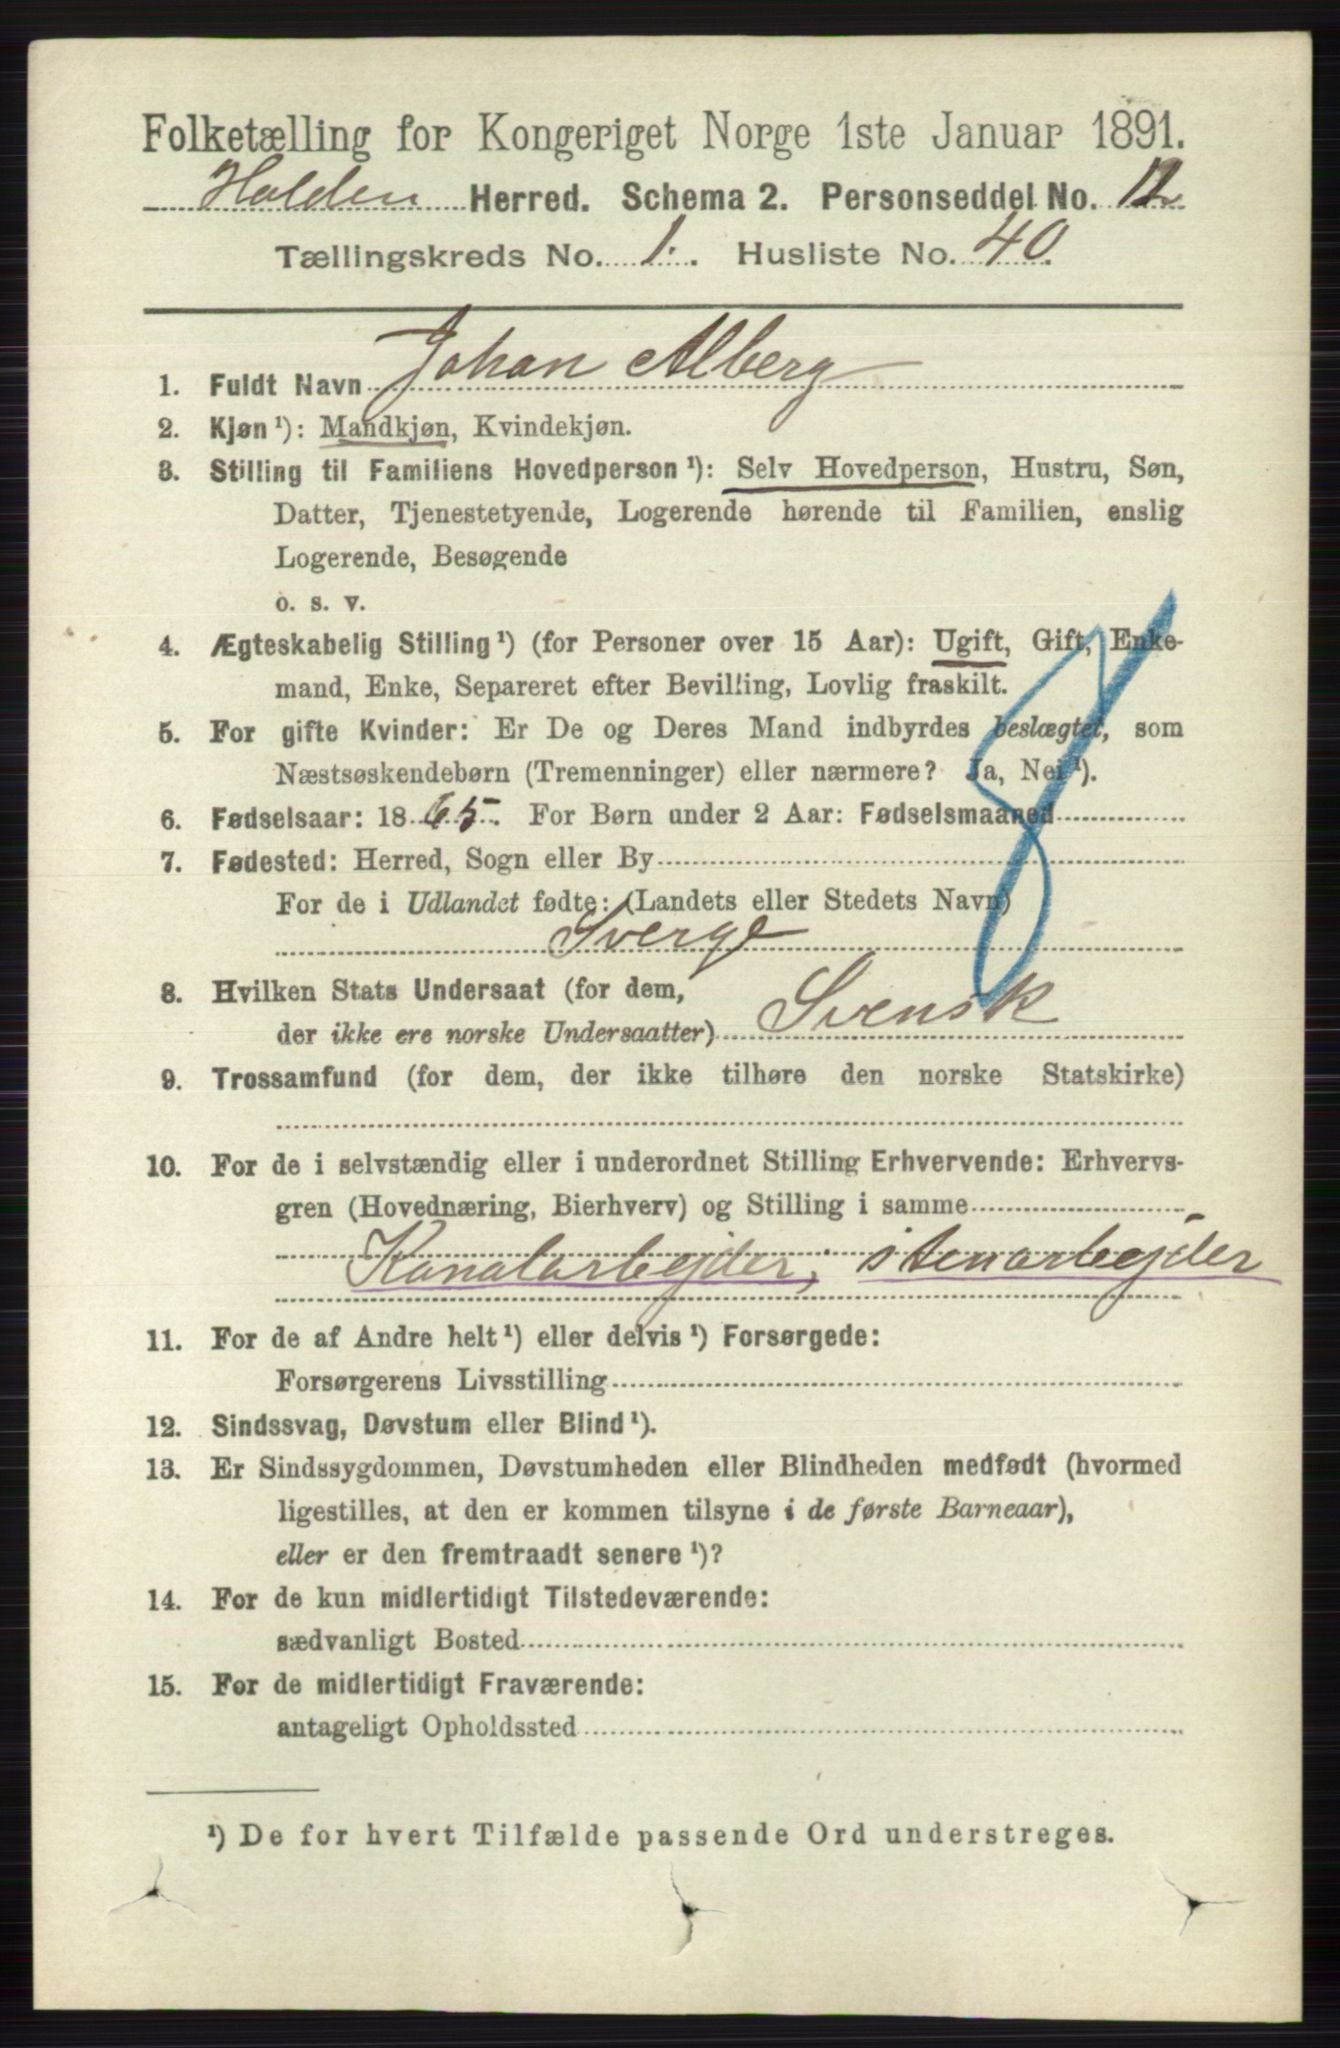 Folketælling for Kongeriget Norge 1ste Januar 1891.
Holden Herred. Schema 2. Personseddel No. 12
Tællingskreds No. 1. Husliste No. 40.
1. Fuldt Navn Johan Alberg
2. Kjøn ¹): Mandkjøn, Kvindekjøn.
3. Stilling til Familiens Hovedperson ¹): Selv Hovedperson, Hustru, Søn,
Datter, Tjenestetyende, Logerende hørende til Familien, enslig
Logerende, Besøgende
o. s. v.
4. Ægteskabelig Stilling ¹) (for Personer over 15 Aar): Ugift, Gift, Enke-
mand, Enke, Separeret efter Bevilling, Lovlig fraskilt.
5. For gifte Kvinder: Er De og Deres Mand indbyrdes beslægtet, som
Næstsøskendebørn (Tremenninger) eller nærmere? Ja, Nei ¹).
6. Fødselsaar: 1865. For Børn under 2 Aar: Fødselsmaaned
7. Fødested: Herred, Sogn eller By
For de i Udlandet fødte: (Landets eller Stedets Navn)
Sverge
8. Hvilken Stats Undersaat (for dem,
der ikke ere norske Undersaatter) Svensk
9. Trossamfund (for dem, der ikke tilhøre den norske Statskirke)
10. For de i selvstændig eller i underordnet Stilling Erhvervende: Erhvervs-
gren (Hovednæring, Bierhverv) og Stilling i samme
Kanalarbejder, stenarbejder
11. For de af Andre helt ¹) eller delvis ¹) Forsørgede:
Forsørgerens Livsstilling
12. Sindssvag, Døvstum eller Blind ¹).
13. Er Sindssygdommen, Døvstumheden eller Blindheden medfødt (hvormed
ligestilles, at den er kommen tilsyne i de første Barneaar),
eller er den fremtraadt senere ¹)?
14. For de kun midlertidigt Tilstedeværende:
sædvanligt Bosted
15. For de midlertidigt Fraværende:
antageligt Opholdssted
¹) De for hvert Tilfælde passende Ord understreges.